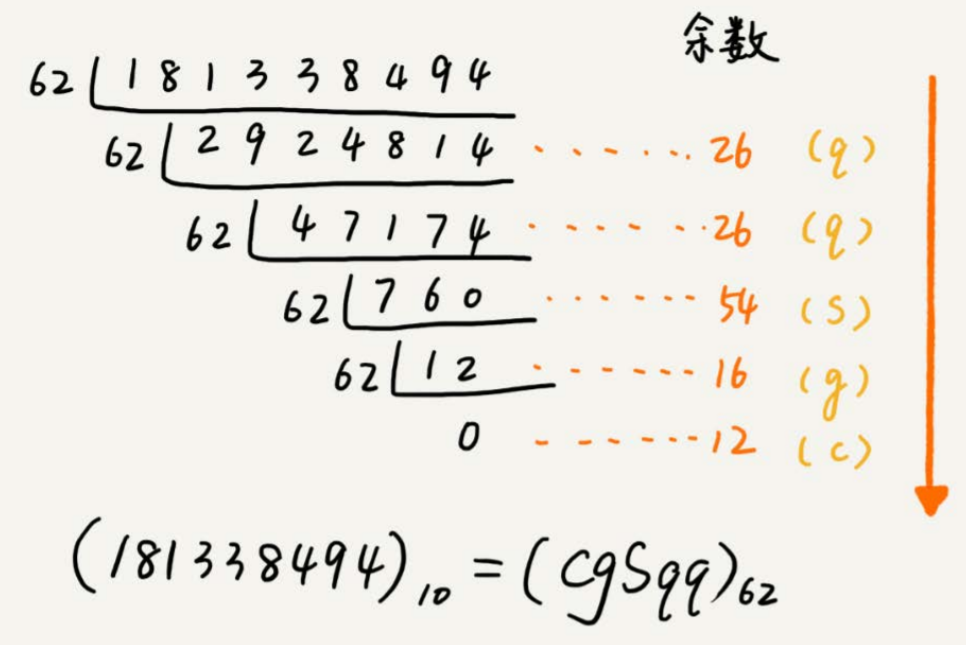 余数
62 181338494
62 2924814 ······ 26 (q)
62 47174 ······ 26 (q)
62 760 ······ 54 (S)
62 12 ······ 16 (g)
0 ······ 12 (c)
(181338494)10 = (cgSqq)62